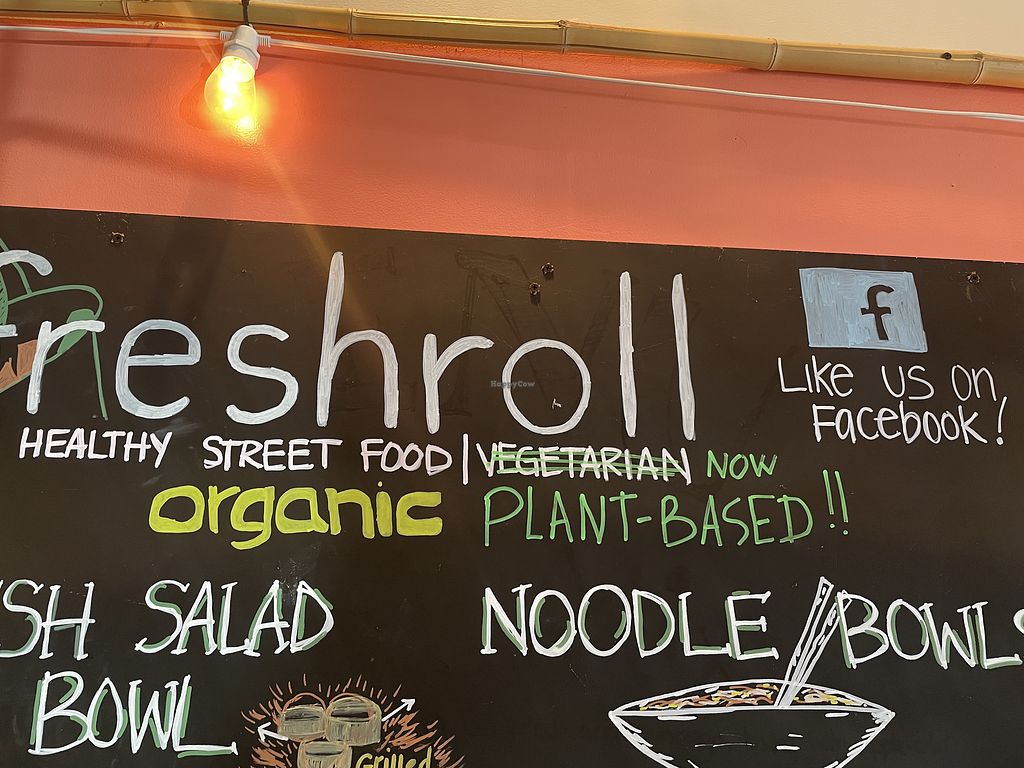 freshroll
f
Like us on,
Facebook!
HEALTHY STREET FOOD | VEGETARIAN NOW
organic PLANT-BASED!!
SH SALAD
BOWL
NOODLE BOWLS
Grilled
HappyCow